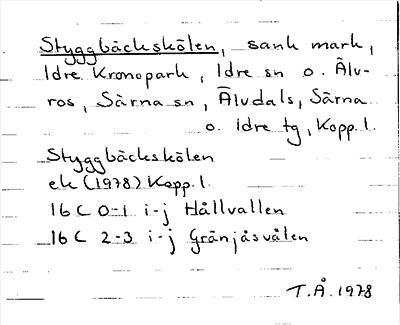 Styggbäckskölen, sank mark,
Idre Kronopark, Idre sn o. Älv-
ros, Särna sn, Älvdals, Särna
o. Idre tg, Kopp.l.
Styggbäckskölen
ek (1978) Kopp.l.
16 C 0-1 i-j Hållvallen
16 C 2-3 i-j Gränjåsvålen
T.Å. 1978